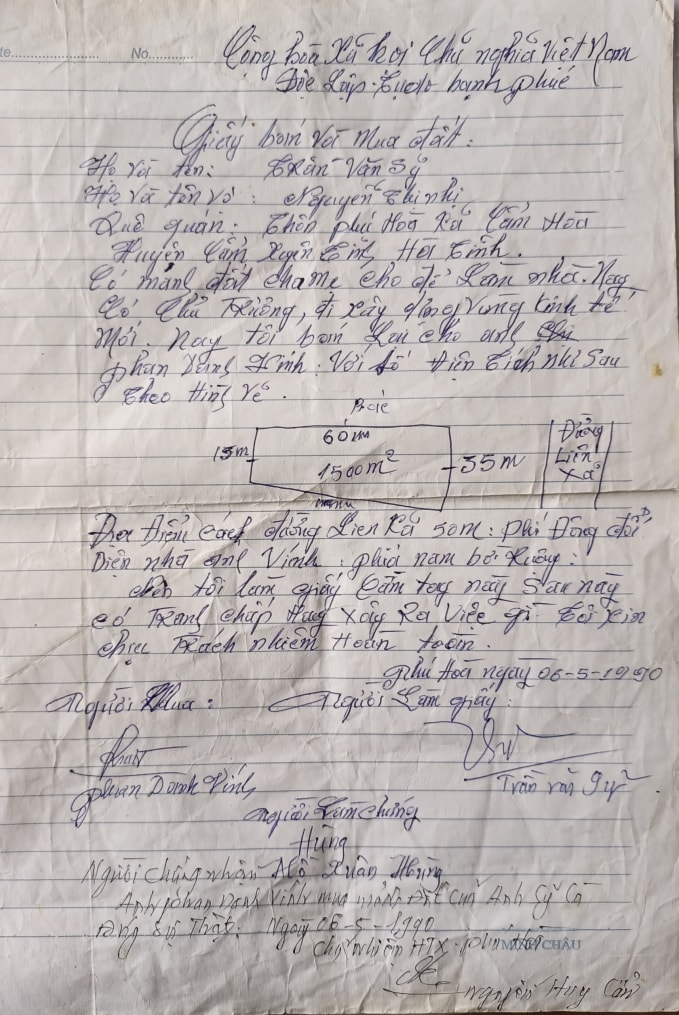 te.................... No............
Cộng hòa Xã hội Chủ nghĩa Việt Nam
Độc Lập Tự do hạnh phúc
Giấy bán và mua đất:
Họ và tên: Trần Văn Sỹ
Họ và tên vợ: Nguyễn Thị nhị
Quê quán: Thôn phú Hoà Xã Cẩm Hòa
Huyện Cẩm Xuyên Tỉnh Hà Tĩnh.
Có mảnh đất cha mẹ cho để Làm nhà. Nay
Có Chủ Trường, đi xây dựng Vùng Kinh tế
Mới. Nay tôi bán Lại cho anh
phan Danh Vính. Với số diện tích như sau
Theo Hình vẽ.
Bắc
60m
15m
1500m²
35m
Đường
Liên
Xã
Địa Điểm cách đường Liên Xã 50m: phí Đông đối
Diện nhà anh Vính: phía nam bờ Ruộng:
tôi làm giấy Cầm tay này Sau này
có Tranh chấp Hay xảy Ra Việc gì Tôi xin
chịu Trách nhiệm Hoàn toàn.
phú Hoà ngày 06-5-1990
Người Mua: Người Làm giấy:
phan Danh Vính
Trần văn Sỹ
Người Làm chứng
Hùng
Người chứng nhận Xuân Hùng
Anh phan Danh Vính mua mảnh Đất Của Anh Sỹ Là
Đúng Sự Thật: Ngày 06-5-1990
Chủ nhiệm HTX phú Hoà
CHÂU
Nguyễn Huy Cẩn